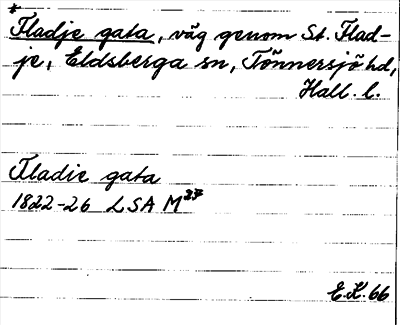 *Fladje gata, väg genom St. Flad-
je, Eldsberga sn, Tönnersjö hd,
Hall. l.
Fladie gata
1822-26 LSA M 27
E.K. 66